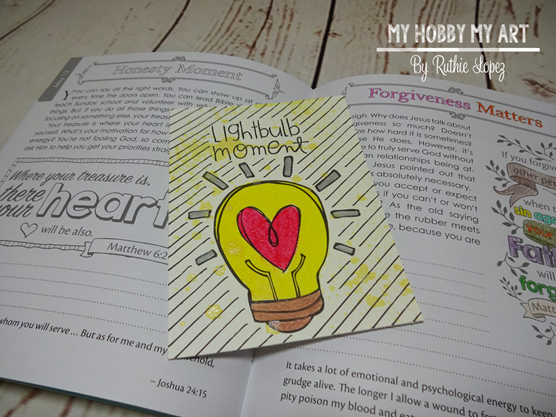 MY HOBBY MY ART
By Ruthie Lopez
Honesty Moment
You can say all the right words. You can show up at
every time the doors open. You can lead Bible
teach Sunday school and volunteer with
things. But if you do all those things
focusing on something else, your
Your treasure is where your heart
yourself. What's your motivation for how
energy? You're not fooling God, so
ask Him to help you get your priorities
Where your treasure is,
there
your heart
will be also.
Matthew 6:2
whom you will serve... But as for me and my
– Joshua 24:15
Lightbulb
moment
Forgiveness Matters
Why does Jesus talk about
forgiveness so much? Doesn't
how hard it is sometimes?
He does. However, it's
to truly serve God without
relationships being at
Jesus pointed out that
absolutely necessary.
you accept or expect
if you can't or won't
As the old saying
the rubber meets
because you are
If you forgive
other
when
sin
your
Fath
will
forg
Matt
It takes a lot of emotional and psychological energy to keep
grudge alive. The longer I allow a wound to
pity poison my blood and